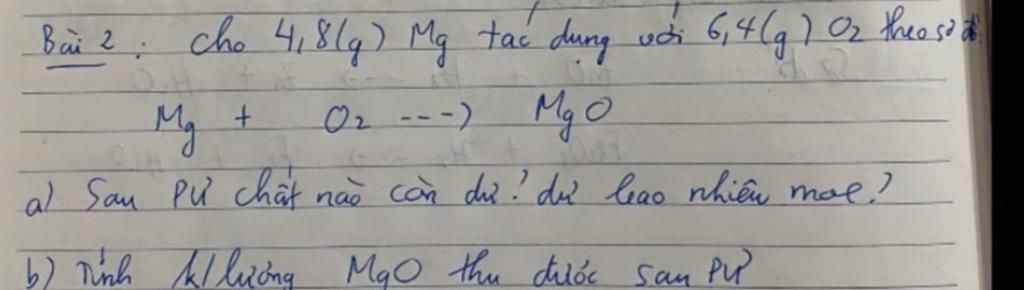 Bài 2: cho 4,8(g) Mg tác dụng với 6,4(g) O2 theo sơ đồ:
Mg + O2 ---> MgO
a) Sau PƯ chất nào còn dư? dư bao nhiêu mol?
b) Tính k/lượng MgO thu được sau PƯ